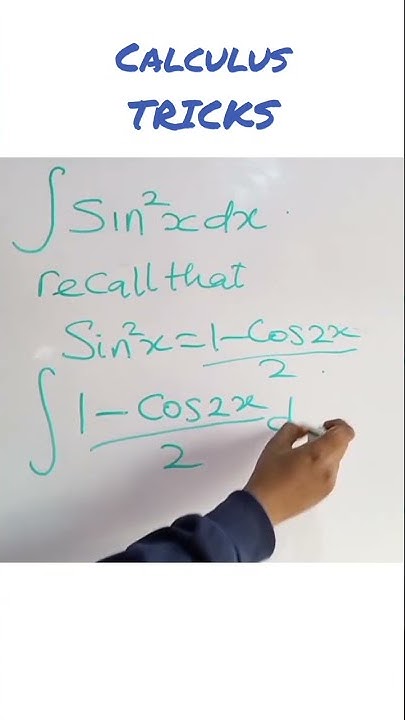 CALCULUS
TRICKS
∫ Sin²x dx.
recall that
Sin²x = 1 - Cos2x / 2.
∫ 1 - Cos2x / 2 d